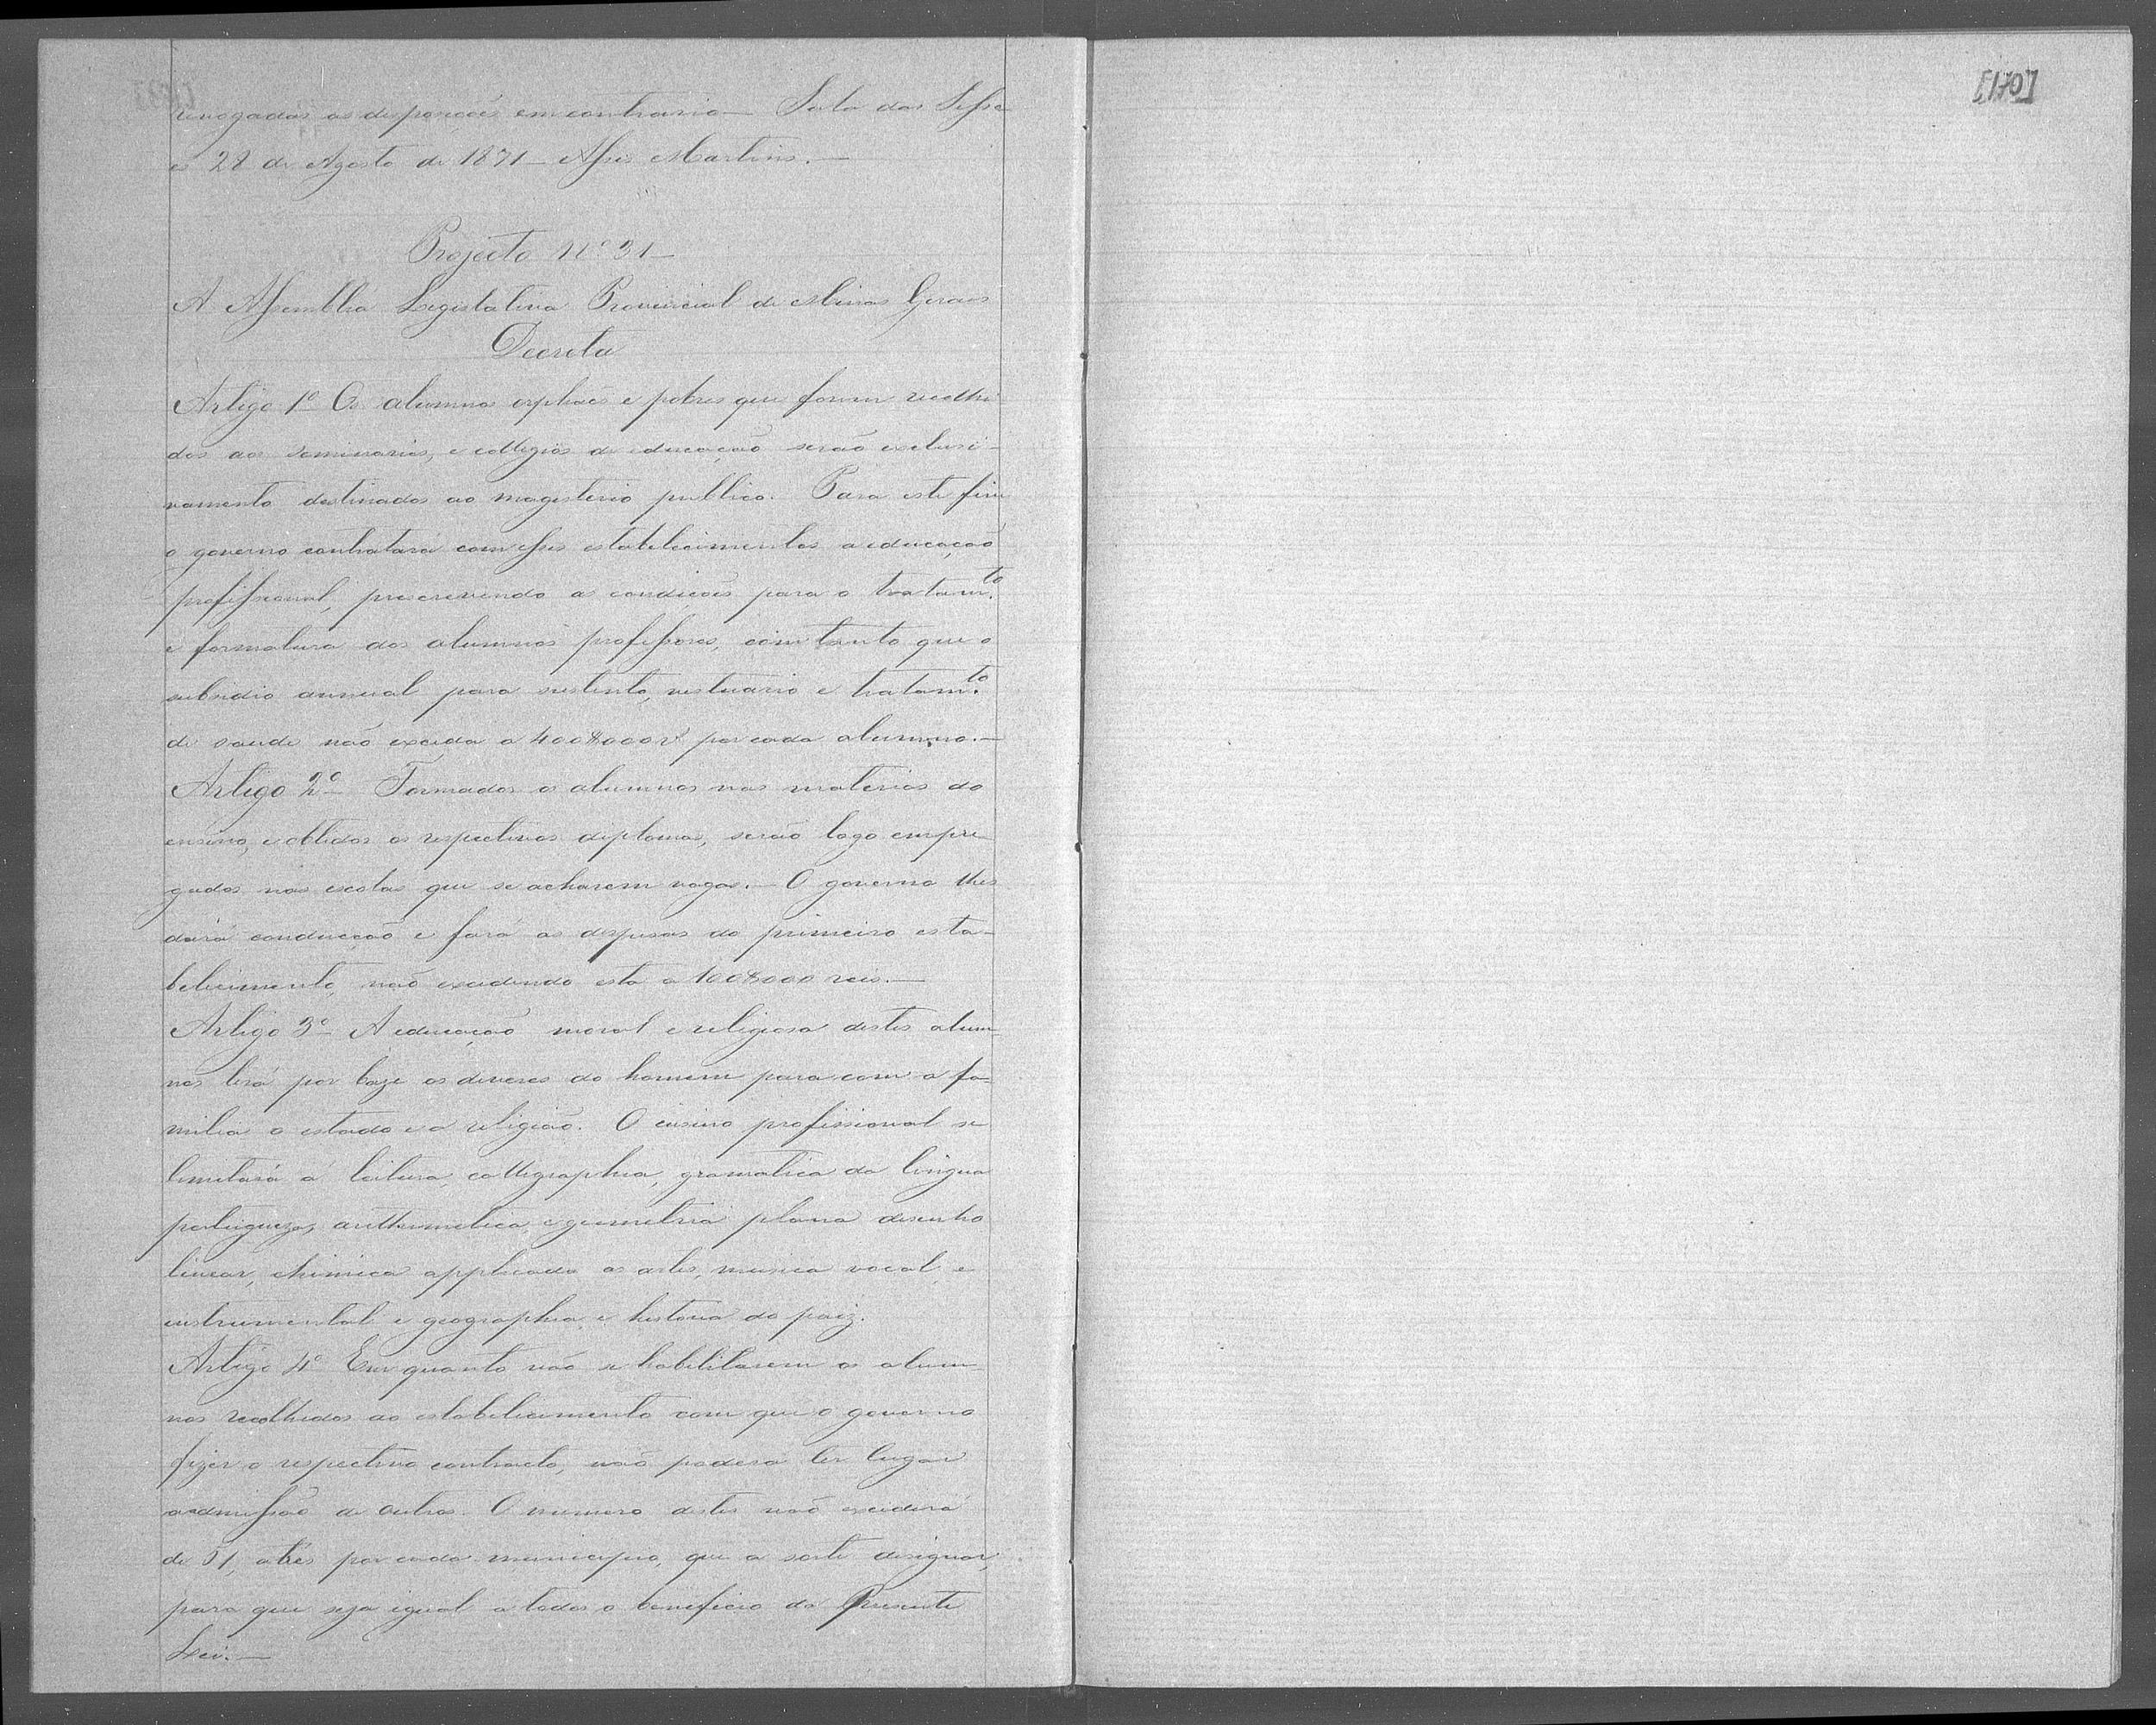 [170]
revogadas as disposições em contrario — Sala das Sesso
es 28 de Agosto de 1871 — Assis Martins. —
Projecto Nº 31 —
A Assemblea Legislativa Provincial de Minas Geraes
Decreta
Artigo 1º Os alumnos orphãos e pobres que forem recolhi
dos aos seminarios, e collegios de educação serão exclusi-
vamente destinados ao magisterio publico. Para este fim
o governo contratará com esses estabelecimentos a educação
profissional, prescrevendo as condições para o tratam.to
e formatura dos alumnos professores, com tanto que o
subsidio annual para sustento, vestuario e tratam.to
de saude não exceda a 400$000 rs por cada alumno. —
Artigo 2º Formados os alumnos nas materias do
ensino, e obtidos os respectivos diplomas, serão logo empre-
gados nas escolas que se acharem vagas. — O governo lhes
dará conducção e fará as despesas do primeiro esta-
belecimento, não excedendo esta a 100$000 reis. —
Artigo 3º A educação moral e religiosa destes alum-
nos terá por baze os deveres do homem para com a fa-
milia o estado e a religião. O ensino profissional se
limitará á leitura, calligraphia, gramatica da lingua
portugueza, arithmetica, e geometria plana desenho
linear, chimica applicada as artes, musica vocal e
instrumental e geographia e historia do paiz.
Artigo 4º Em quanto não se habilitarem os alum-
nos recolhidos ao estabelecimento com que o governo
fizer o respectivo contracto, não poderá ter lugar
a admissão de outros. O numero destes não excederá
de 51, a tres por cada municipio, que a sorte designar,
para que seja igual a todos o beneficio da Presente
Lei. —